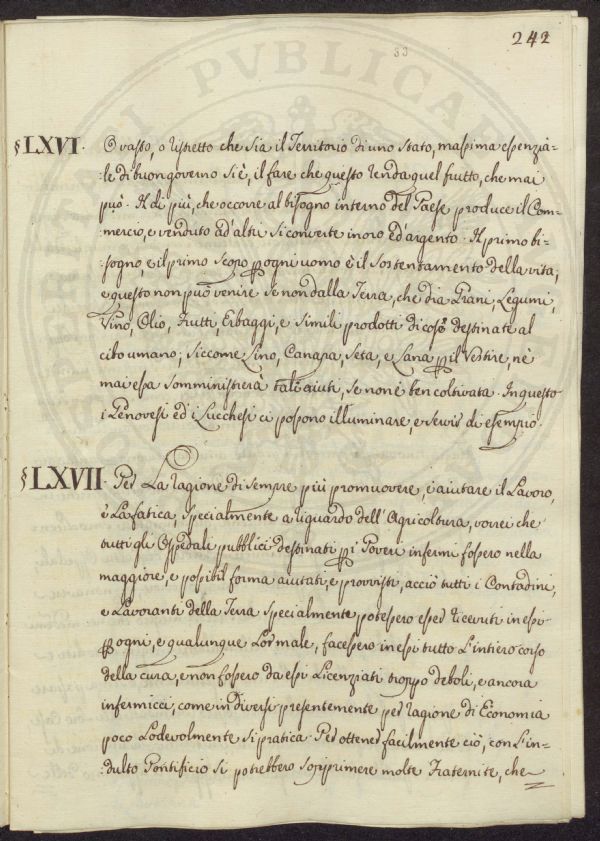 242
53
§ LXVI. O vasto, o ristretto che sia il Territorio di uno Stato, massima essenzia=
le di buon governo si è, il fare che questo renda quel frutto, che mai
può. Il di più, che occorre al bisogno interno del Paese produce il Com=
mercio, e venduto ad'altri si converte in oro ed argento. Il primo bi=
sogno, e il primo scopo p ogni uomo è il sostentamento della vita,
e questo non può venire se non dalla Terra, che dia Grani, Legumi,
Vino, Olio, Frutti, Erbaggi, e simili prodotti di cose destinate al
cibo umano; siccome Lino, Canapa, Seta, e Lana p il Vestire, nè
mai essa somministrerà tali aiuti, se non è ben coltivata. In questo
i Genovesi ed' i Lucchesi ci possono illuminare, e servir di esempio.
§ LXVII. Per La ragione di sempre più promuovere, e aiutare il Lavoro,
e La fatica, specialmente a riguardo dell'Agricoltura, vorrei che
tutti gli Ospedali pubblici destinati p i Poveri infermi fossero nella
maggiore, e possibil forma aiutati, e provvisti, acciò tutti i Contadini,
e Lavoranti della Terra specialmente potessero esser ricevuti in essi
p ogni, e qualunque Lor male, facessero in essi tutto L'intiero corso
della cura, e non fossero da essi Licenziati troppo deboli, e ancora
infermicci, come in diversi presentemente per ragione di Economia
poco Lodevolmente si pratica. Per ottener facilmente ciò, con L'in=
dulto Pontificio si potrebbero sopprimere molte Fraternite, che